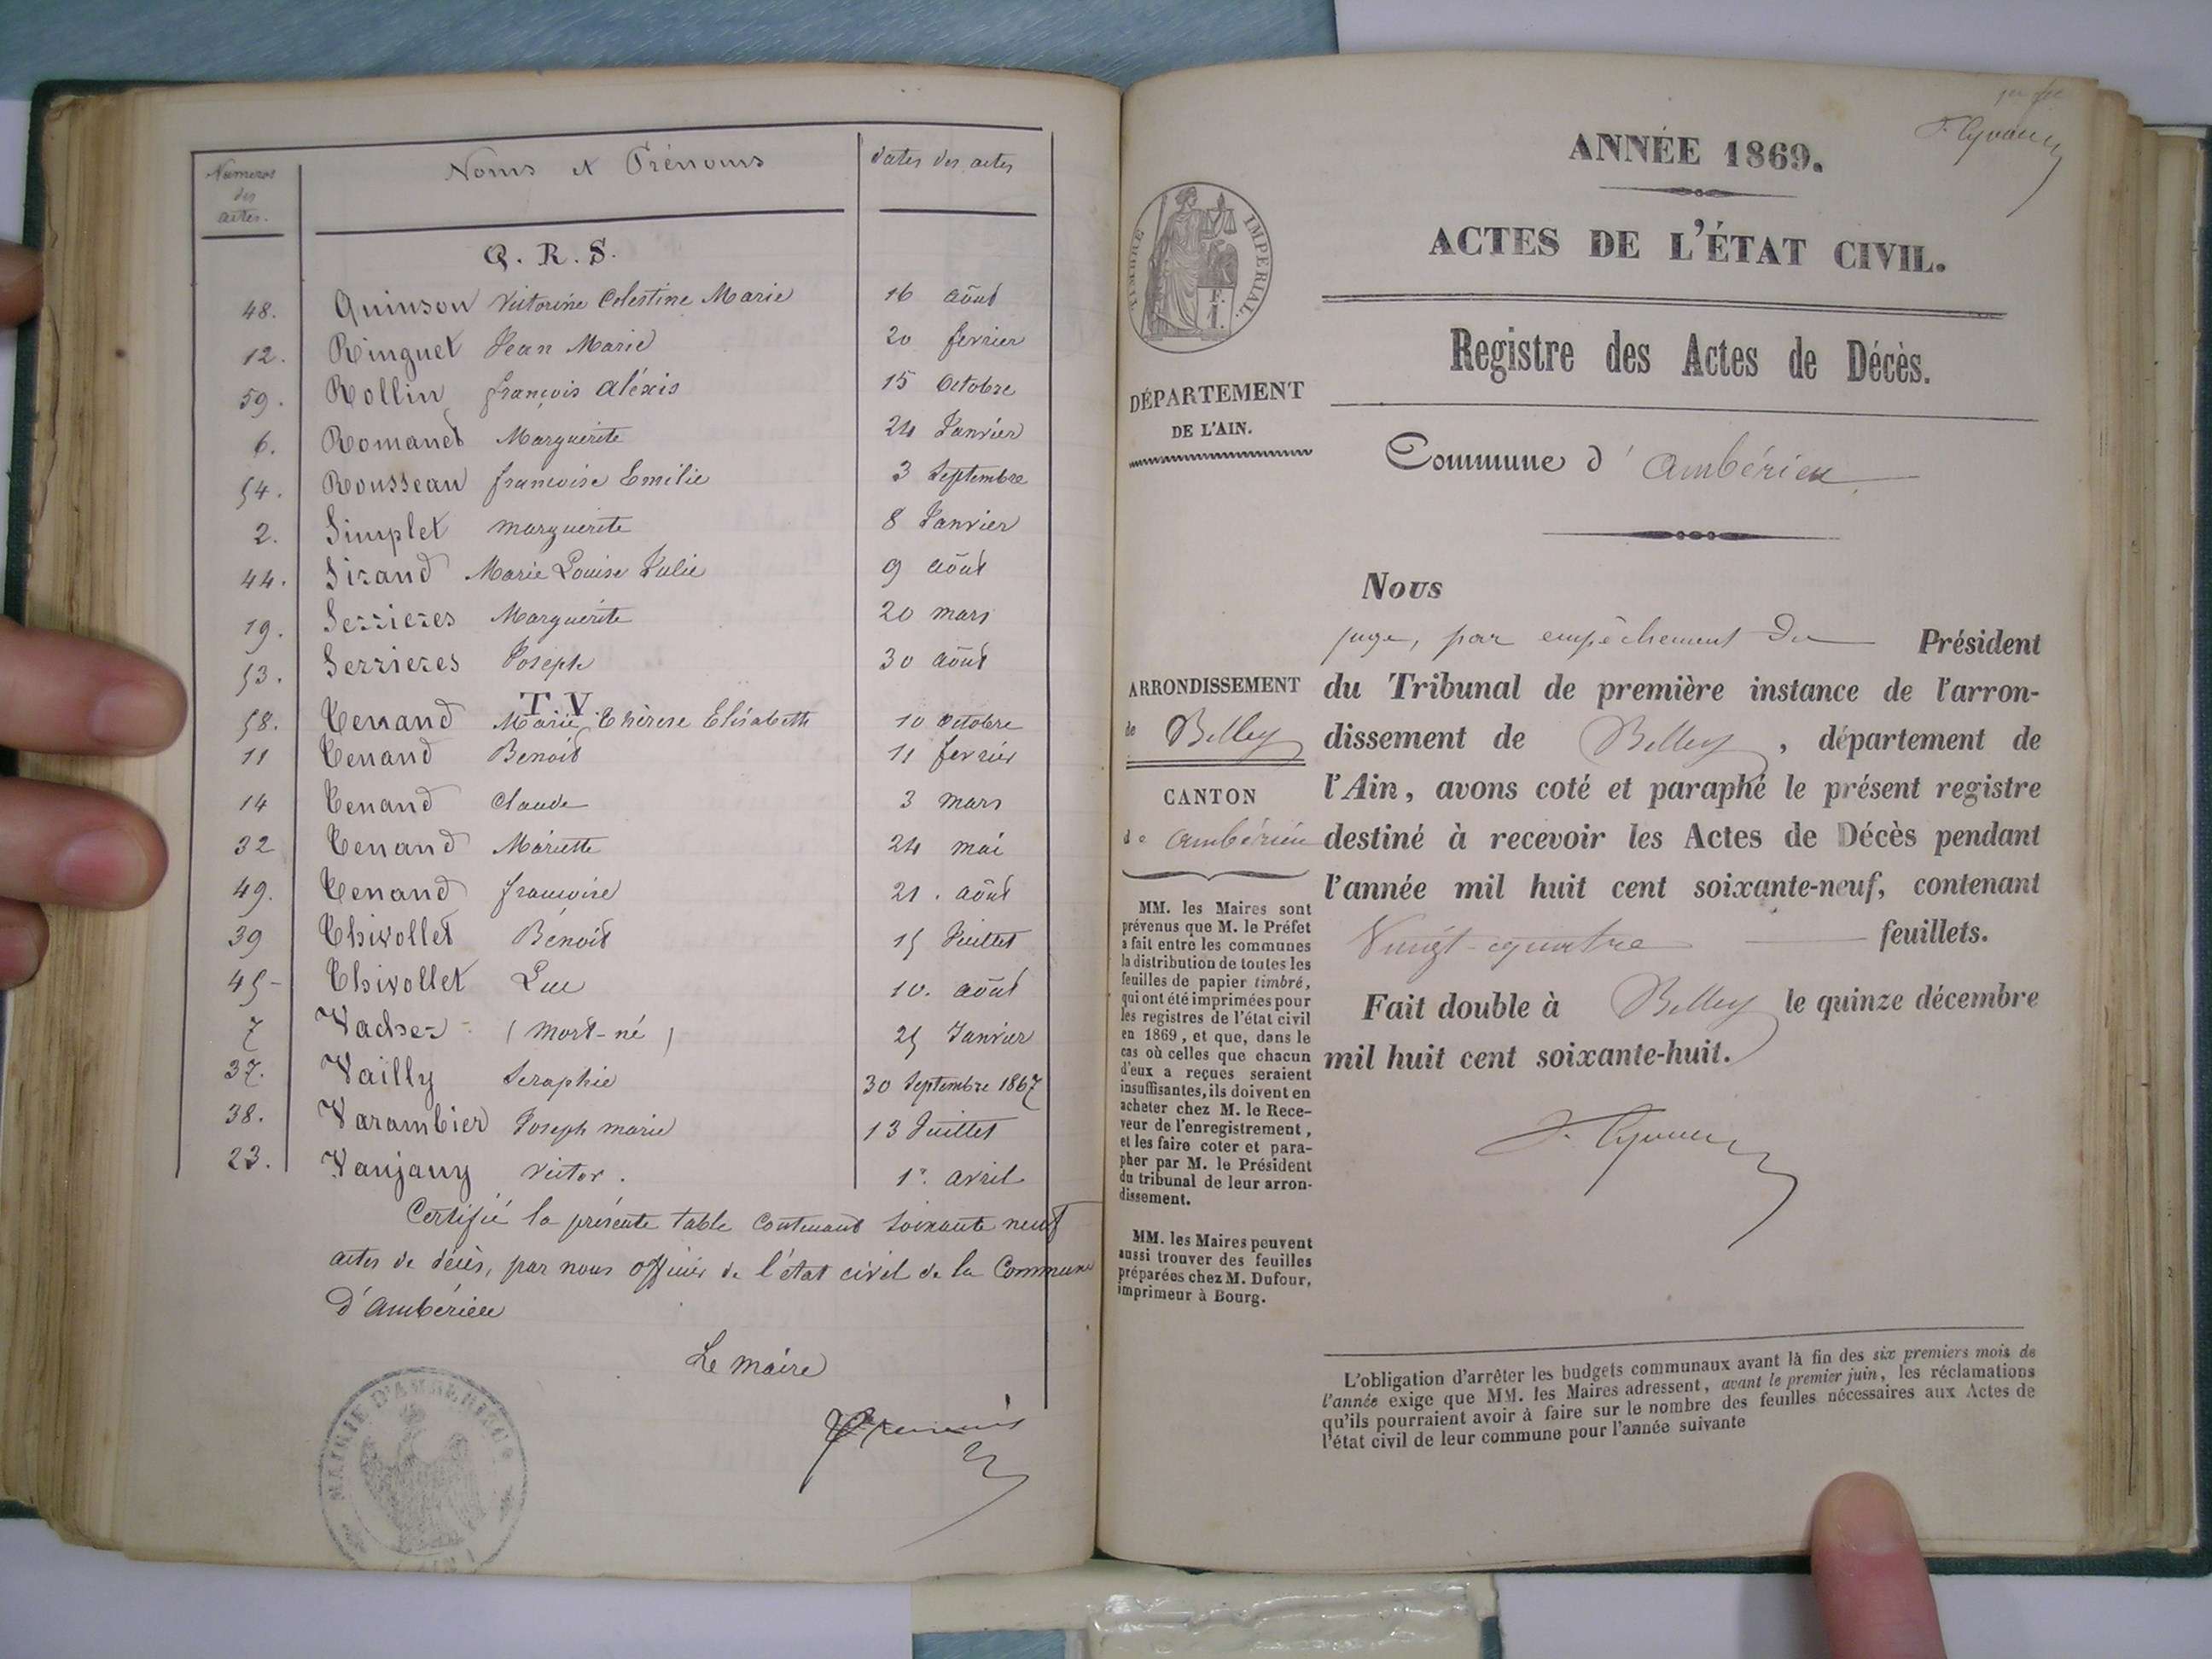 Numeros des actes.
Noms et Prénoms
dates des actes
Q. R. S.
48. Quinson Victorine Celestine Marie 16 août
12. Ringuet Jean Marie 20 fevrier
59. Rollin françois aléxis 15 Octobre
6. Romanet Marguerite 24 Janvier
54. Rousseau francoise Emilie 3 Septembre
2. Simplet marguerite 8 Janvier
44. Sirand Marie Louise Julie 9 août
19. Serrieres Marguerite 20 mars
53. Serrieres Joseph 30 août
T. V.
58. Tenand Marie Thérese Elisabeth 10 octobre
11 Tenand Benoit 11 fevrier
14 Tenand Claude 3 mars
32 Tenand Mariette 24 mai
49. Tenand francoise 21. août
39 Thivollet Bénoit 15 Juillet
45- Thivollet Luc 10. août
7 Vacher (mort-né) 25 Janvier
37. Vailly Seraphie 30 Septembre 1867
38. Varambier Joseph marie 13 Juillet
23. Vanjany victor. 1er avril
Certifié la présente table contenant soixante neuf
actes de décès, par nous officier de l'état civil de la Commune
d'ambérieu
Le maire
MAIRIE D'AMBERIEU
ANNÉE 1869.
ACTES DE L'ÉTAT CIVIL.
Registre des Actes de Décès.
Commune d' ambérieu
TIMBRE IMPERIAL.
DÉPARTEMENT
DE L'AIN.
ARRONDISSEMENT
de Belley
CANTON
de ambérieu
MM. les Maires sont
prévenus que M. le Préfet
a fait entre les communes
la distribution de toutes les
feuilles de papier timbré,
qui ont été imprimées pour
les registres de l'état civil
en 1869, et que, dans le
cas où celles que chacun
d'eux a reçues seraient
insuffisantes, ils doivent en
acheter chez M. le Rece-
veur de l'enregistrement,
et les faire coter et para-
pher par M. le Président
du tribunal de leur arron-
dissement.
MM. les Maires peuvent
aussi trouver des feuilles
préparées chez M. Dufour,
imprimeur à Bourg.
Nous
juge, par empêchement du Président
du Tribunal de première instance de l'arron-
dissement de Belley, département de
l'Ain, avons coté et paraphé le présent registre
destiné à recevoir les Actes de Décès pendant
l'année mil huit cent soixante-neuf, contenant
Vingt-quatre feuillets.
Fait double à Belley le quinze décembre
mil huit cent soixante-huit.
L'obligation d'arrêter les budgets communaux avant la fin des six premiers mois de
l'année exige que MM. les Maires adressent, avant le premier juin, les réclamations
qu'ils pourraient avoir à faire sur le nombre des feuilles nécessaires aux Actes de
l'état civil de leur commune pour l'année suivante